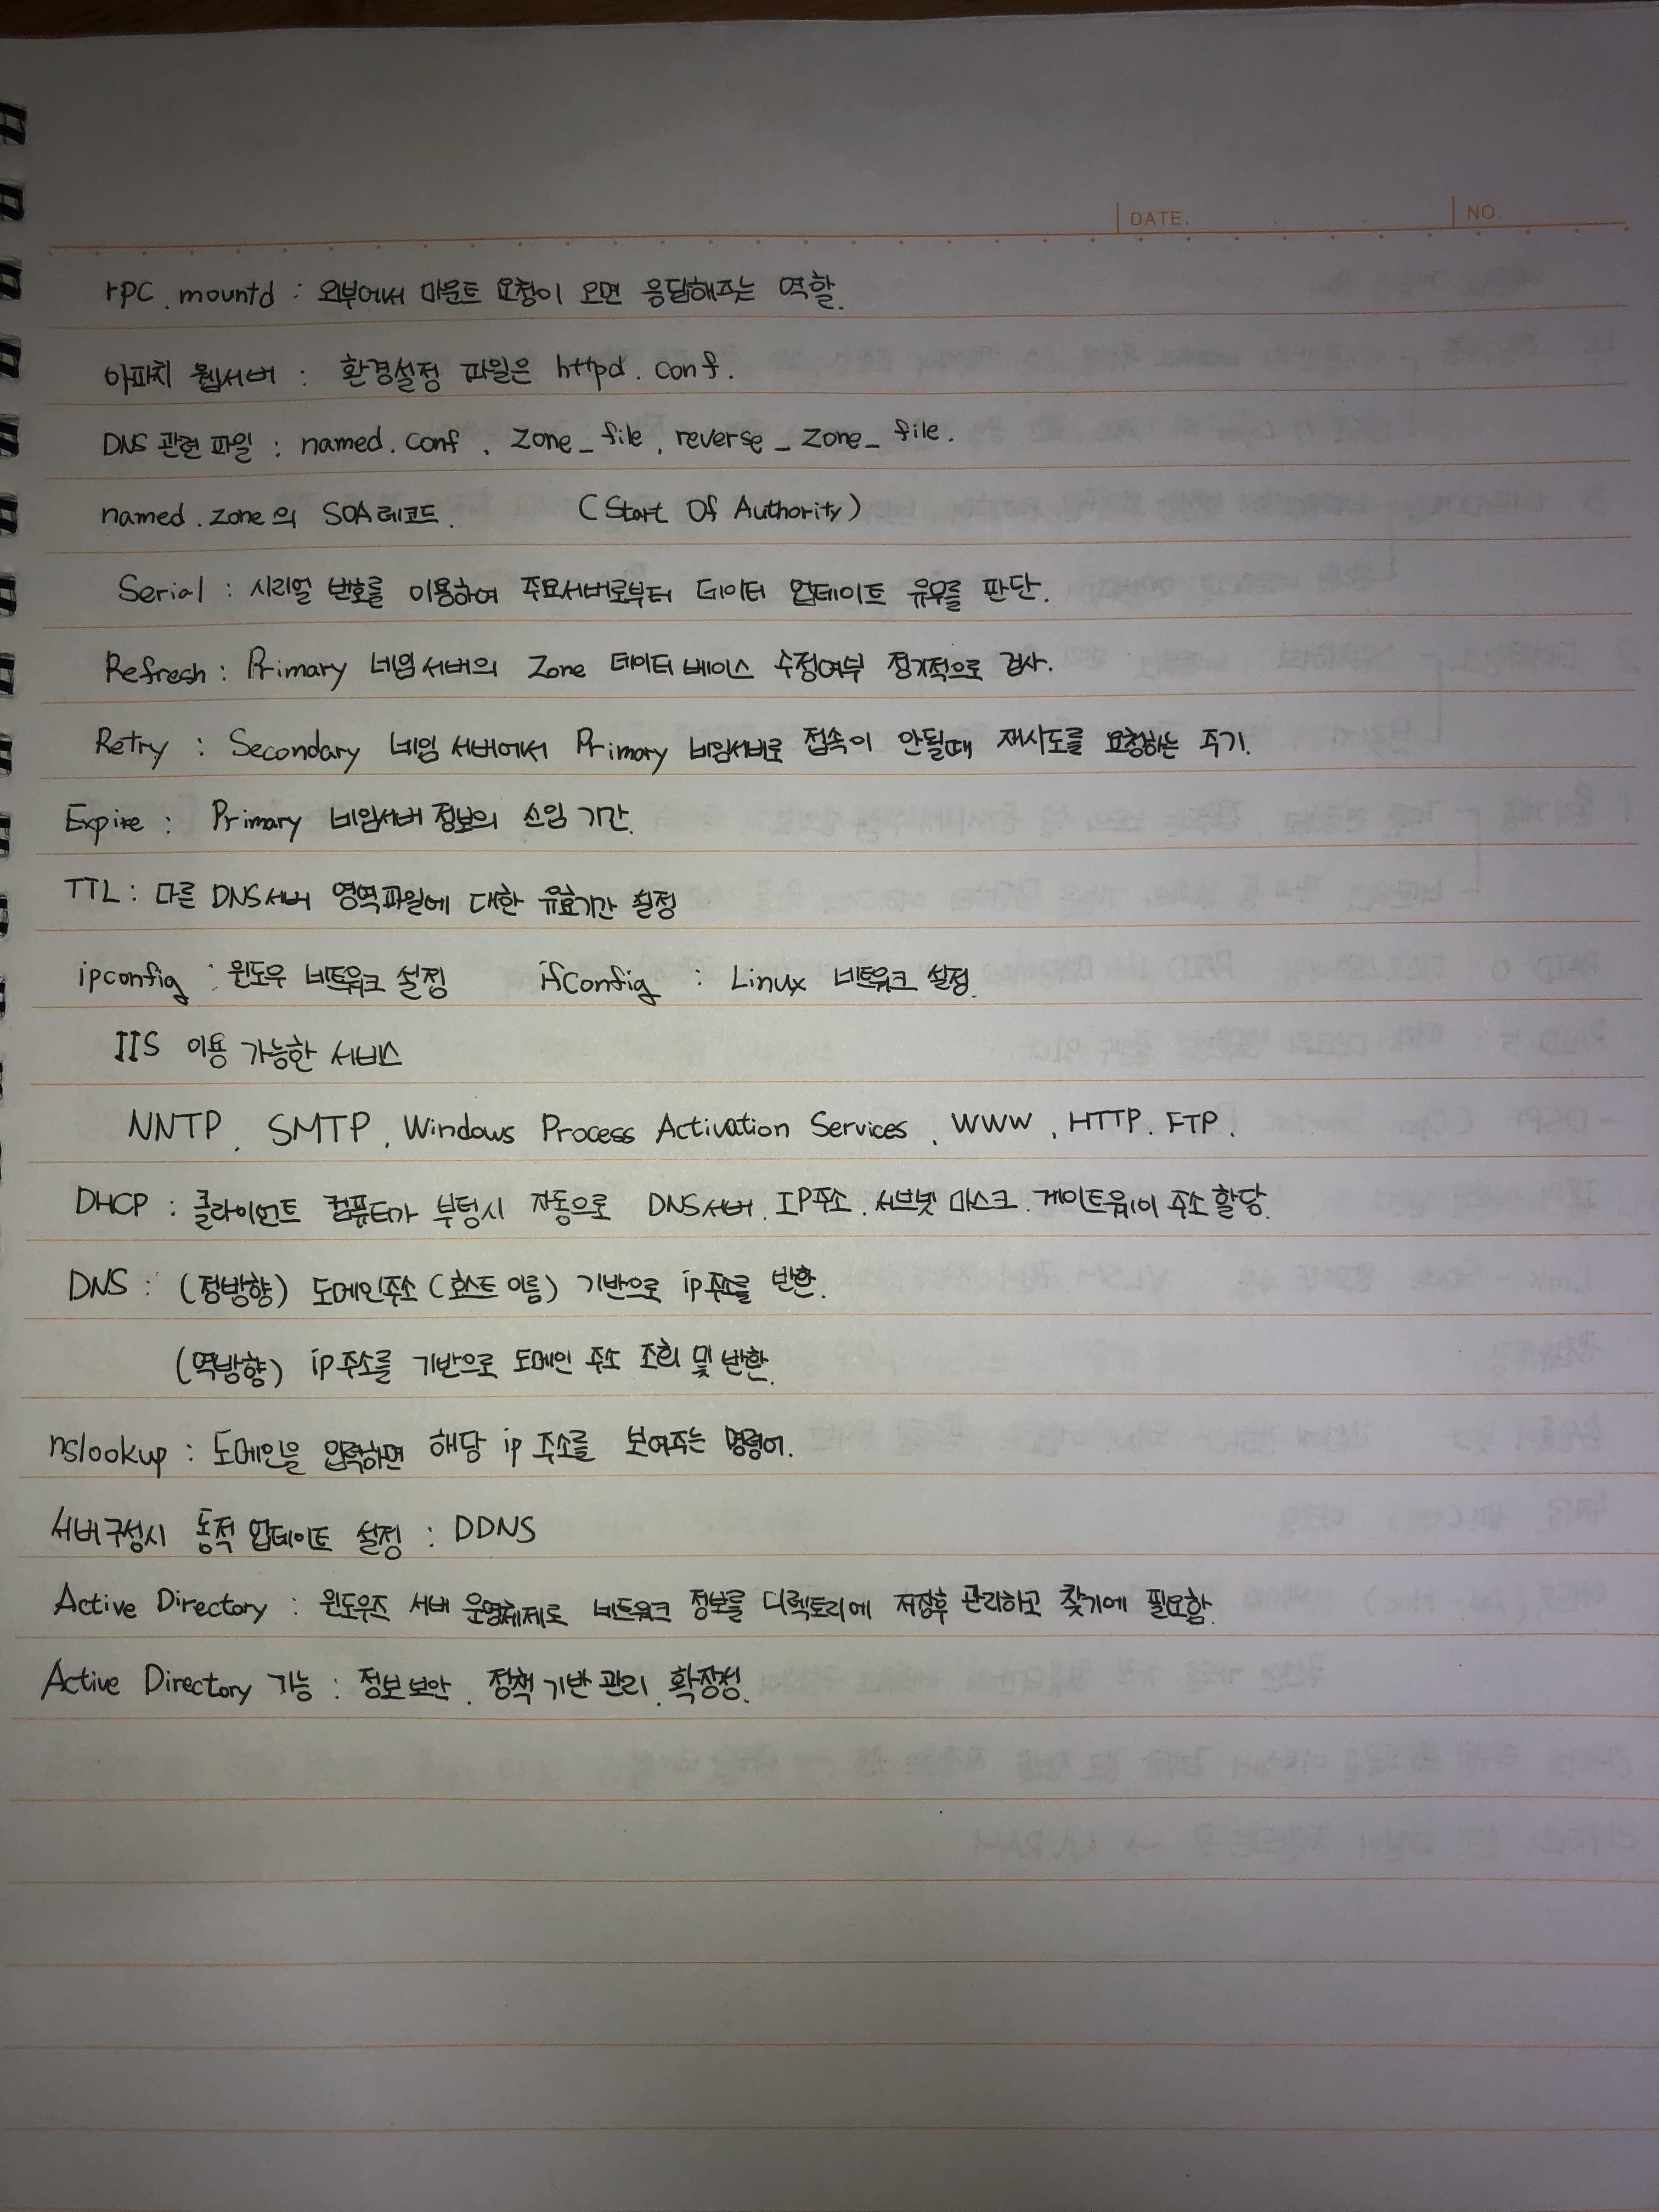 DATE. NO.
rpc.mountd : 외부에서 마운트 요청이 오면 응답해주는 역할.
아파치 웹서버 : 환경설정 파일은 httpd.conf.
DNS 관련 파일 : named.conf, zone_file, reverse_zone_file.
named.zone의 SOA레코드. (Start Of Authority)
Serial : 시리얼 번호를 이용하여 주요서버로부터 데이터 업데이트 유무를 판단.
Refresh : Primary 네임서버의 Zone 데이터베이스 수정여부 정기적으로 검사.
Retry : Secondary 네임 서버에서 Primary 네임서버로 접속이 안될때 재시도를 요청하는 주기.
Expire : Primary 네임서버 정보의 신임 기간.
TTL : 다른 DNS서버 영역파일에 대한 유효기간 설정
ipconfig : 윈도우 네트워크 설정 ifconfig : Linux 네트워크 설정.
IIS 이용 가능한 서비스
NNTP, SMTP, Windows Process Activation Services, WWW, HTTP, FTP.
DHCP : 클라이언트 컴퓨터가 부팅시 자동으로 DNS서버, IP주소, 서브넷 마스크, 게이트웨이 주소 할당.
DNS : (정방향) 도메인주소(호스트 이름) 기반으로 ip주소를 반환.
(역방향) ip주소를 기반으로 도메인 주소 조회 및 반환.
nslookup : 도메인을 입력하면 해당 ip 주소를 보여주는 명령어.
서버구성시 동적 업데이트 설정 : DDNS
Active Directory : 윈도우즈 서버 운영체제로 네트워크 정보를 디렉토리에 저장후 관리하고 찾기에 필요함.
Active Directory 기능 : 정보보안, 정책기반관리, 확장성.